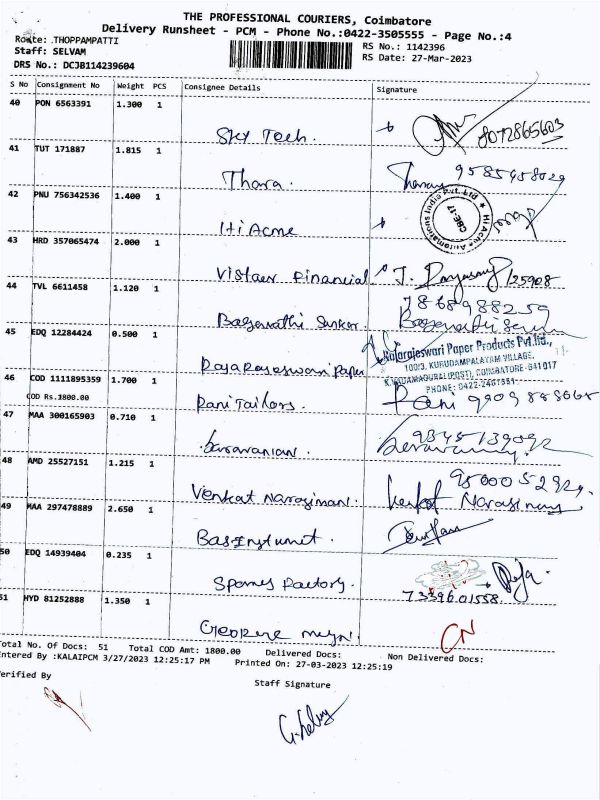 THE PROFESSIONAL COURIERS, Coimbatore
Delivery Runsheet - PCM - Phone No.:0422-3505555 - Page No.:4
Route: THOPPAMPATTI
Staff: SELVAM
RS No.: 1142396
RS Date: 27-Mar-2023
DRS No.: DCJB114239604
S No Consignment No Weight PCS Consignee Details Signature
40 PON 6563391 1.300 1
Sky Tech. 8072865603
41 TUT 171887 1.815 1
Thara. 9585458029
42 PNU 756342536 1.400 1
Hi Acme
Hi Acme Automations India Pvt. Ltd
CBE-17
43 HRD 357065474 2.000 1
Vistaar Financial
44 TVL 6611458 1.120 1
7868988259
Bagavathi Sankar
45 EDQ 12284424 0.500 1
Rajarajeswari Paper
Rajarajeswari Paper Products Pvt.ltd.,
100/3, KURUDAMPALAYAM VILLAGE,
K.VADAMADURAI (POST), COIMBATORE-641017
PHONE: 0422-2461551
46 COD 1111895359 1.700 1
COD Rs.1800.00
Rani Tailors. Rani
47 MAA 300165903 0.710 1
Saravanan. 9345139092
48 AMD 25527151 1.215 1
Venkat Narasiman.
49 MAA 297478889 2.650 1
50 EDQ 14939404 0.235 1
Spames Factory. Raja.
7339601558
51 HYD 81252888 1.350 1
George CN
Total No. Of Docs: 51 Total COD Amt: 1800.00 Delivered Docs: Non Delivered Docs:
Entered By :KALAIPCM 3/27/2023 12:25:17 PM Printed On: 27-03-2023 12:25:19
Verified By Staff Signature